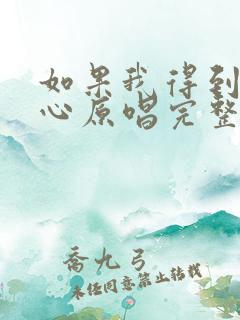 如果我得到
心原唱完整
喬九弓
未经同意禁止转载